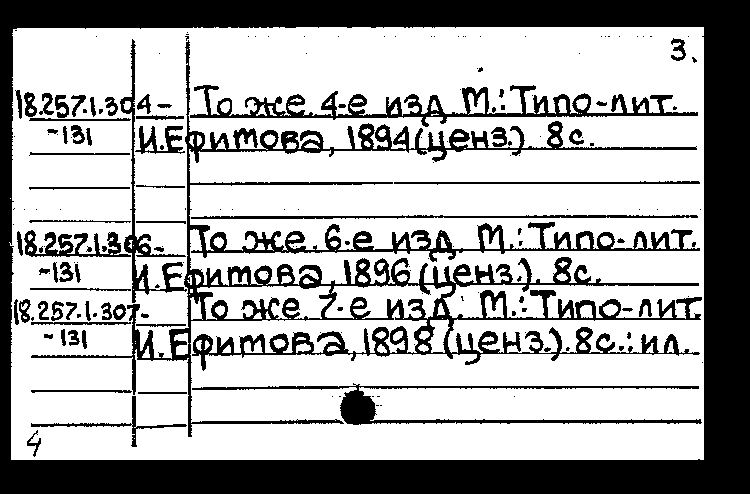 3.
18.257.1.304- То же. 4-е изд. М.: Типо-лит.
-131 И.Ефимова, 1894 (ценз.). 8с.
18.257.1.306- То же. 6-е изд. М.: Типо-лит.
-131 И.Ефимова, 1896 (ценз.). 8с.
18.257.1.307- То же. 7-е изд. М.: Типо-лит.
-131 И.Ефимова, 1898 (ценз.). 8с.: ил.
4